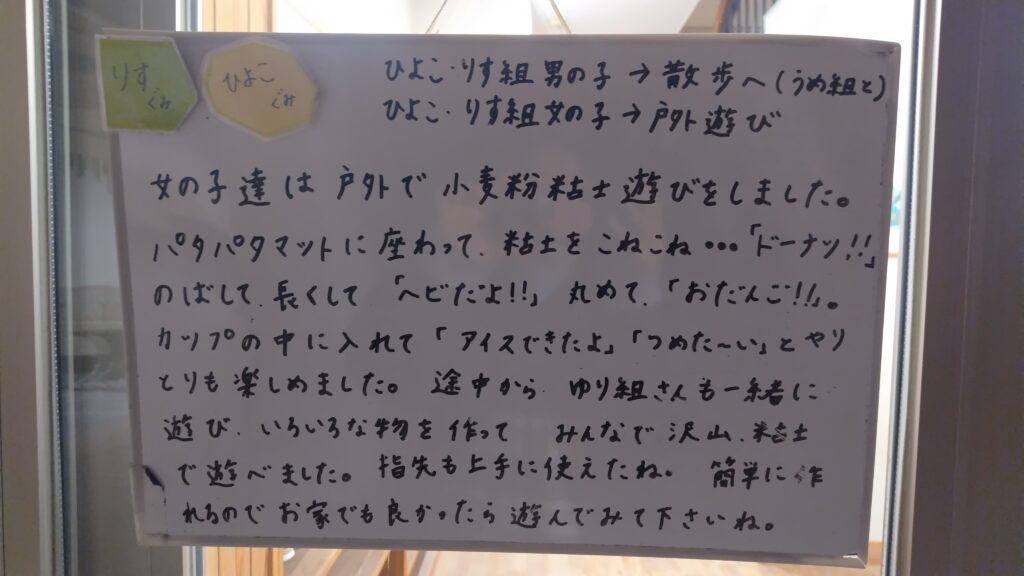 りす
ぐみ
ひよこ
ぐみ
ひよこ・りす組男の子→散歩へ(うめ組と)
ひよこ・りす組女の子→戸外遊び
女の子達は戸外で小麦粉粘土遊びをしました。
パタパタマットに座わって、粘土をこねこね・・・「ドーナツ!!」
のばして、長くして「ヘビだよ!!」丸めて、「おだんご!!」。
カップの中に入れて「アイスできたよ」「つめた〜い」とやり
とりも楽しめました。途中から、ゆり組さんも一緒に
遊び、いろいろな物を作って みんなで沢山、粘土
で遊べました。指先も上手に使えたね。簡単に作
れるのでお家でも良かったら遊んでみて下さいね。